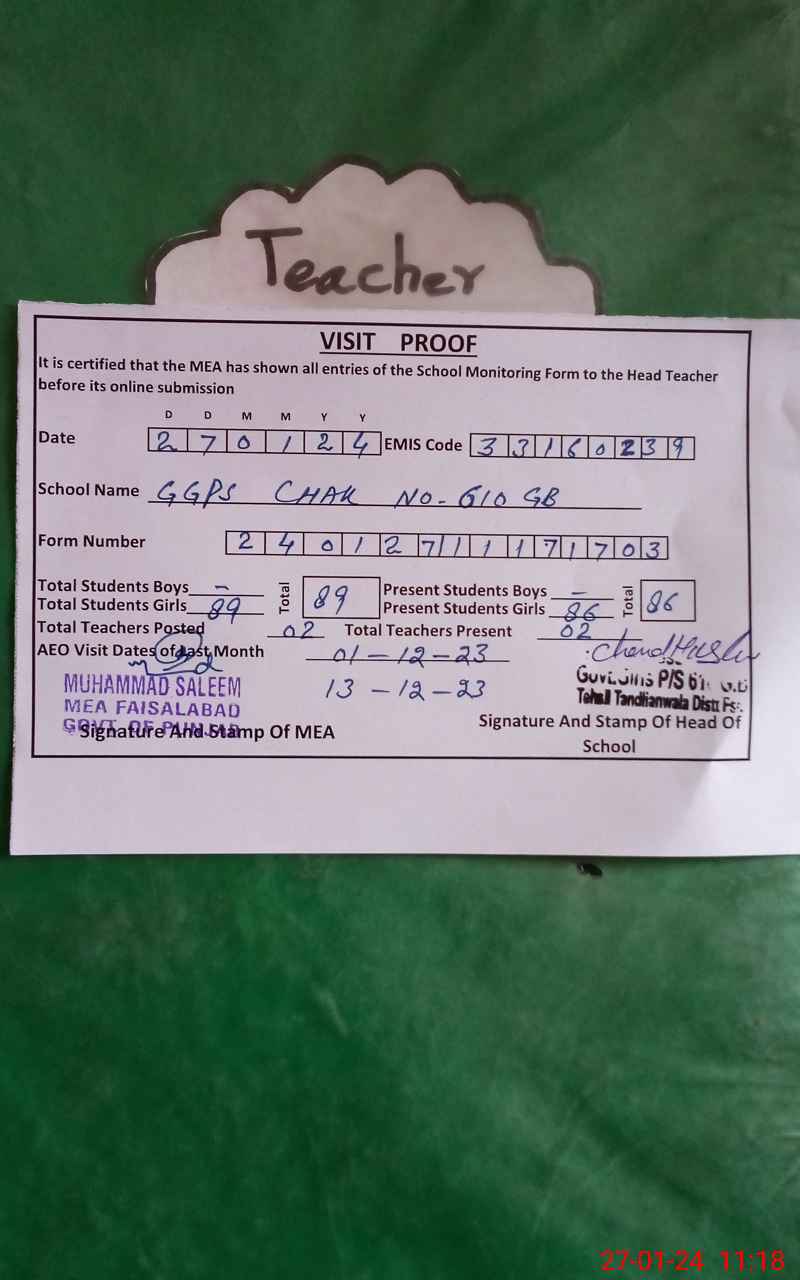 Teacher
VISIT PROOF
It is certified that the MEA has shown all entries of the School Monitoring Form to the Head Teacher
before its online submission
D D M M Y Y
Date 2 7 0 1 2 4 EMIS Code 3 3 1 6 0 2 3 9
School Name GGPS CHAK NO-610 GB
Form Number 2 4 0 1 2 7 1 1 1 7 1 7 0 3
Total Students Boys - Total 89 Present Students Boys - Total 86
Total Students Girls 89 Present Students Girls 86
Total Teachers Posted 02 Total Teachers Present 02
AEO Visit Dates of Last Month 01-12-23
13-12-23
MUHAMMAD SALEEM
MEA FAISALABAD
GOVT. OF PUNJAB
Signature And Stamp Of MEA
P/S
Tehsil Tandlianwala Distt
Signature And Stamp Of Head Of
School
27-01-24 11:18